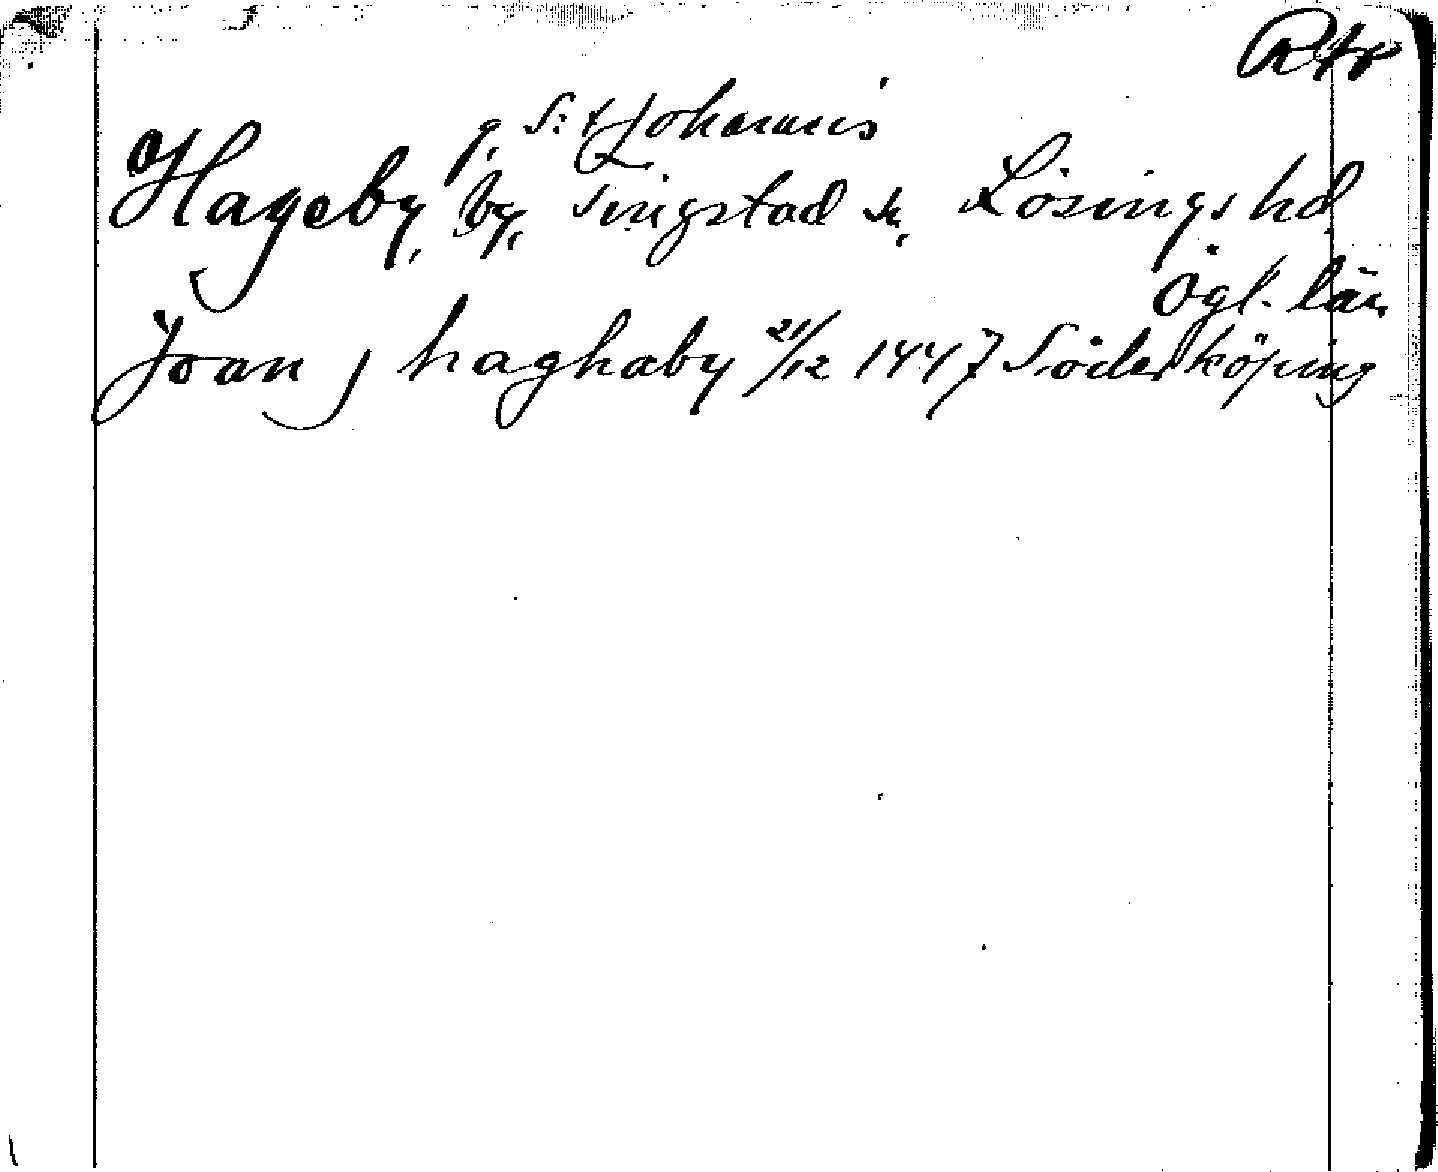 Rtp
g. S:t Johannis
Hageby, by, Tingstad sn, Lösings hd,
Ögl. län,
Joan j haghaby 21/12 1447 Söderköping